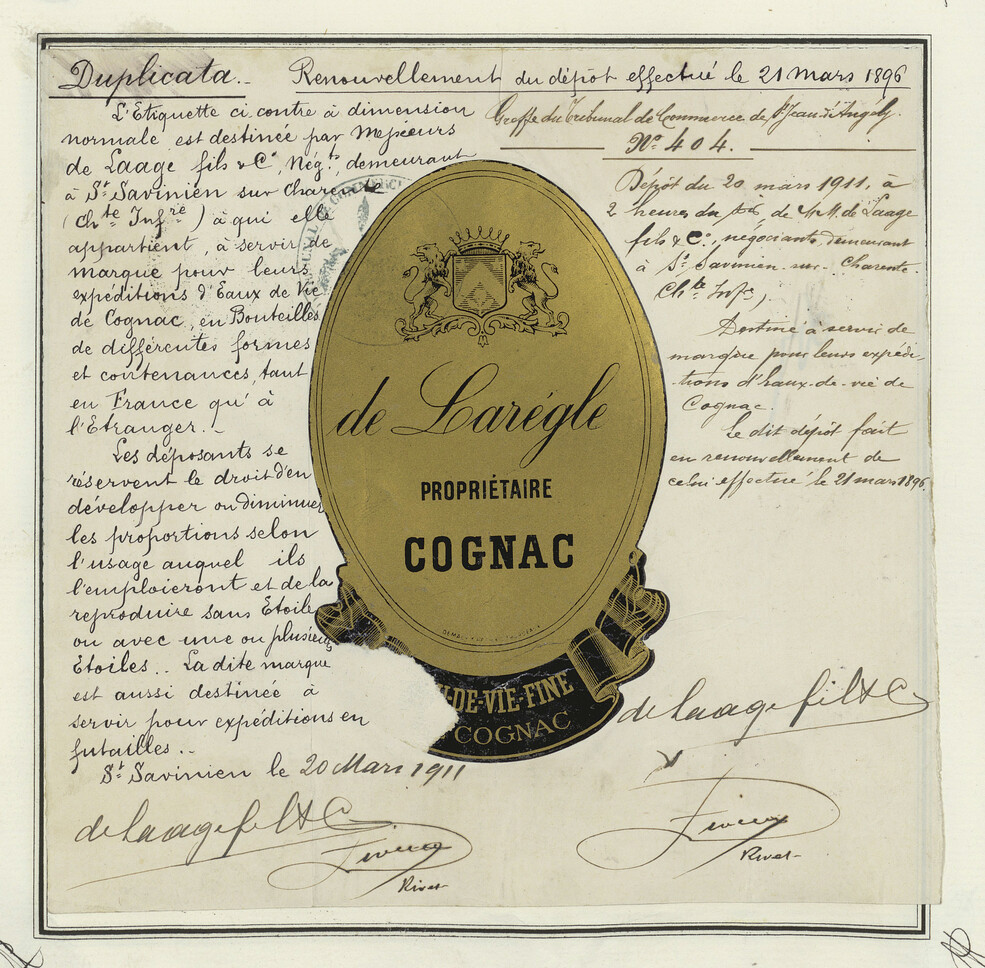 Duplicata.
Renouvellement du dépôt effectué le 21 Mars 1896
L'Etiquette ci contre à dimension
normale est destinée par Messieurs
de Laage fils & Cº, Négts, demeurant
à St Savinien sur Charente
(Chte Infre) à qui elle
appartient, à servir de
marque pour leurs
expéditions d'Eaux de Vie
de Cognac, en Bouteilles
de différentes formes
et contenances, tant
en France qu'à
l'Etranger.
Les déposants se
réservent le droit d'en
développer ou diminuer
les proportions selon
l'usage auquel ils
l'emploieront et de la
reproduire sans Etoile
ou avec une ou plusieurs
Etoiles.. La dite marque
est aussi destinée à
servir pour expéditions en
futailles..
St Savinien le 20 Mars 1911
de Laage fils & Cº
Rivet
Greffe du Tribunal de Commerce de St Jean d'Angély.
Nº 404.
Dépôt du 20 mars 1911, à
2 heures du de MM. de Laage
fils & Cº, négociants, demeurant
à St Savinien-sur-Charente.
Chte Infre,
Destiné à servir de
marque pour leurs expédi-
tions d'eaux-de-vie de
Cognac.
Le dit dépôt fait
en renouvellement de
celui effectué le 21 mars 1896.
de Laage fils & Cº
Rivet
de Larégle
PROPRIÉTAIRE
COGNAC
-DE-VIE-FINE
COGNAC